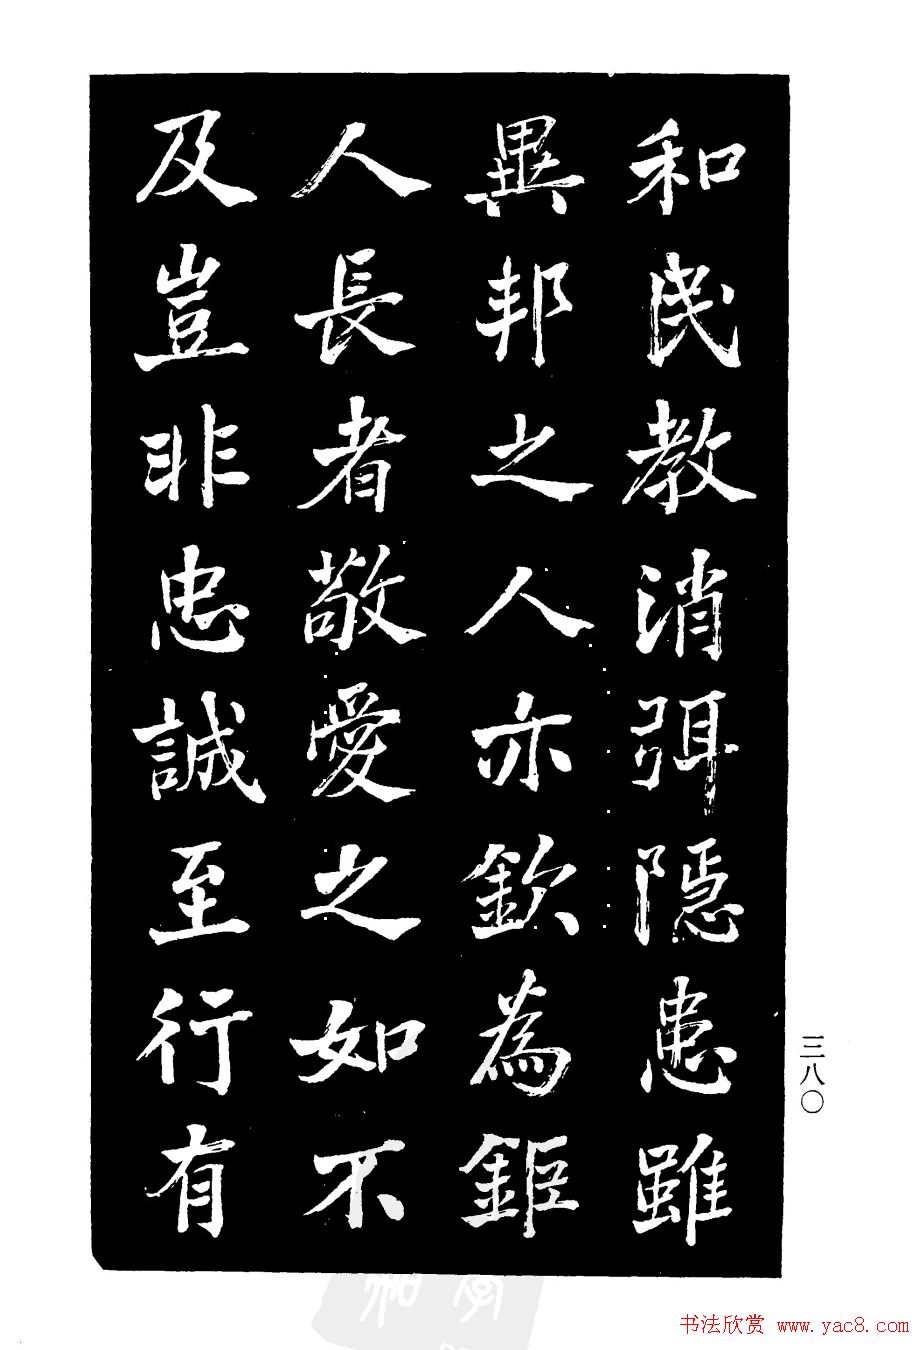 和民教消弭隱患雖
異邦之人亦欽為鉅
人長者敬愛之如不
及豈非忠誠至行有
三八〇
书法欣赏 www.yac8.com